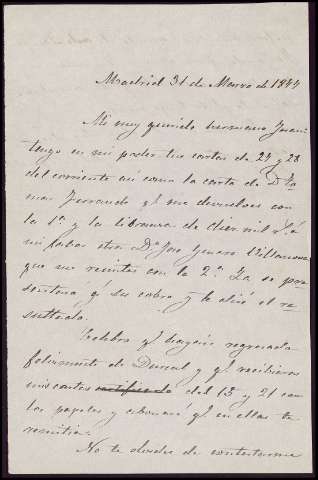 Madrid 31 de Marzo de 1844
Mi muy querido hermano Juan:
tengo en mi poder tus cartas de 24 y 28
del corriente asi como la carta de Dn To-
mas Ferrando qe me devuelves con
la 1ª y la libranza de diez mil Rs á
mi favor otra Dn José Genaro Villanova
que me remites con la 2ª La se pre-
sentará pª su cobro y te diré el re-
sultado.
Celebro qe hayais regresado
felizmente de Duncal y qe recibieras
mis cartas del 13 y 21 con
los papeles y abonaré qe en ellas te
remitia.
No te olvides de contestarme